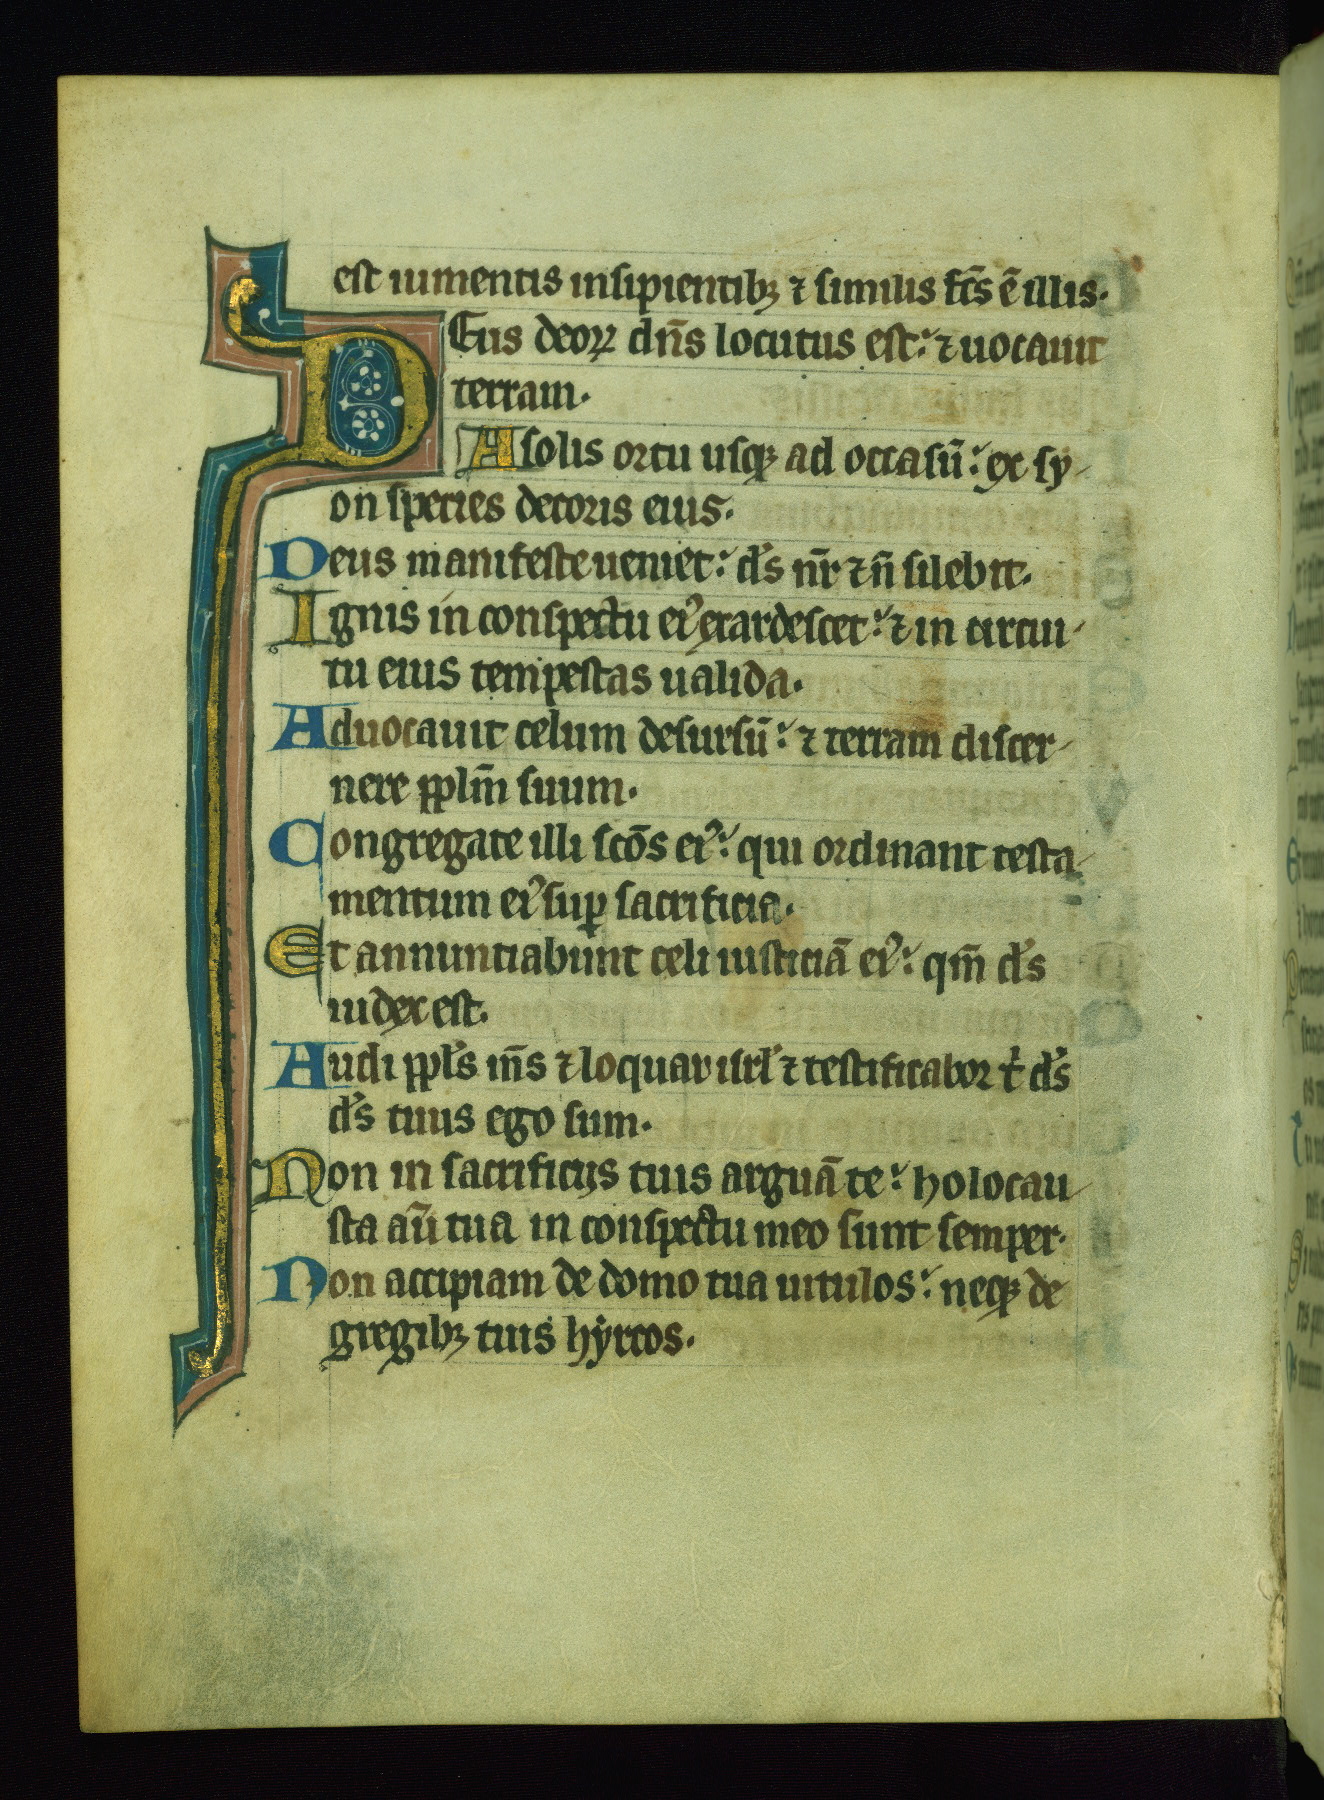 est iumentis insipientibꝫ ⁊ similis fc̄s ē illis.
DEus deoꝝ dn̄s locutus est: ⁊ uocauit
terram.
A solis ortu usqꝫ ad occasū: ex sy-
on species decoris eius.
Deus manifeste ueniet: ds̄ nr̄ ⁊ n̄ silebit.
Ignis in conspectu eiꝰ exardescet: ⁊ in circui-
tu eius tempestas ualida.
Aduocauit celum desursū: ⁊ terram discer-
nere pplm̄ suum.
Congregate illi scōs eiꝰ: qui ordinant testa-
mentum eiꝰ suꝑ sacrificia.
Et annuntiabunt celi iusticiā eiꝰ: qm̄ ds̄
iudex est.
Audi ppls̄ ms̄ ⁊ loquar isrl̄ ⁊ testificabor t̄ ds̄
ds̄ tuus ego sum.
Non in sacrificijs tuis arguā te: holocau-
sta aū tua in conspectu meo sunt semper.
Non accipiam de domo tua uitulos: neqꝫ de
gregibꝫ tuis hẏrcos.